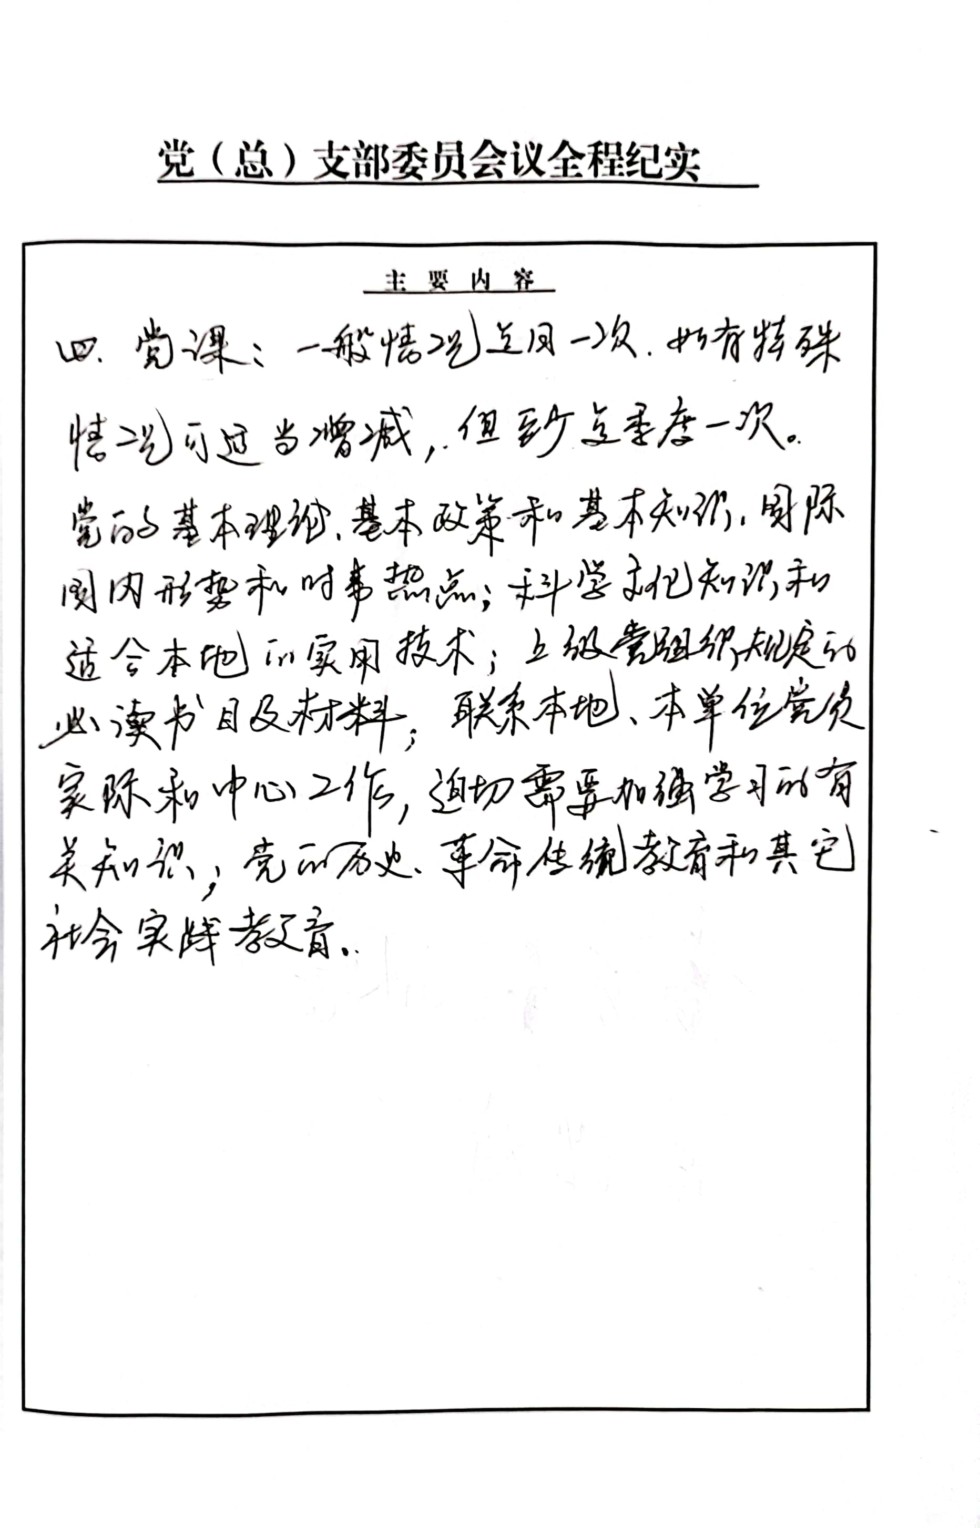 党（总）支部委员会议全程纪实
主要内容
四、党课：一般情况每月一次.如有特殊
情况可适当增减，但至少每季度一次。
党的基本理论、基本政策和基本知识、国际
国内形势和时事热点；科学文化知识和
适合本地的实用技术；上级党组织规定的
必读书目及材料；联系本地、本单位党员
实际和中心工作，迫切需要加强学习的有
关知识；党的历史、革命传统教育和其它
社会实践教育。